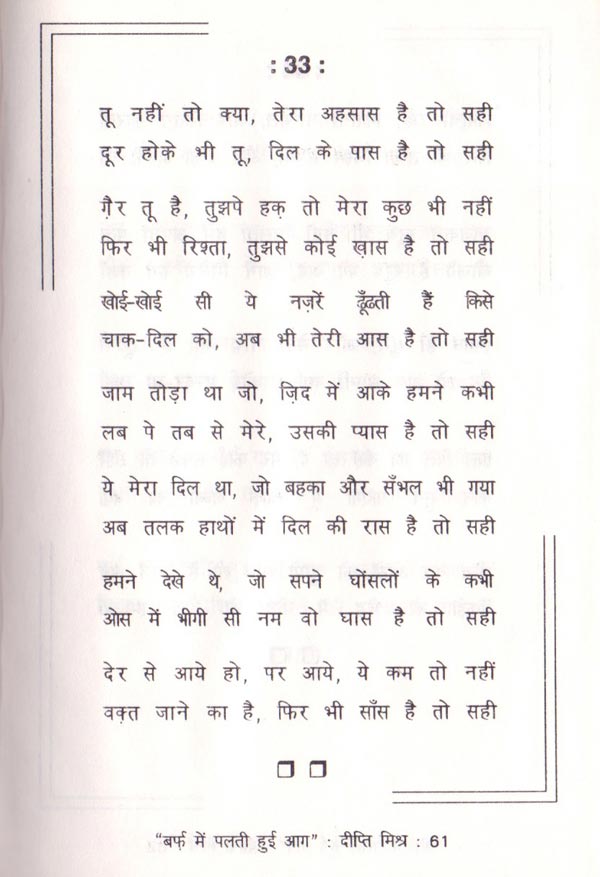 : 33 :
तू नहीं तो क्या, तेरा अहसास है तो सही
दूर होके भी तू, दिल के पास है तो सही
ग़ैर तू है, तुझपे हक़ तो मेरा कुछ भी नहीं
फिर भी रिश्ता, तुझसे कोई ख़ास है तो सही
खोई-खोई सी ये नज़रें ढूँढती हैं किसे
चाक-दिल को, अब भी तेरी आस है तो सही
जाम तोड़ा था जो, ज़िद में आके हमने कभी
लब पे तब से मेरे, उसकी प्यास है तो सही
ये मेरा दिल था, जो बहका और सँभल भी गया
अब तलक हाथों में दिल की रास है तो सही
हमने देखे थे, जो सपने घोंसलों के कभी
ओस में भीगी सी नम वो घास है तो सही
देर से आये हो, पर आये, ये कम तो नहीं
वक़्त जाने का है, फिर भी साँस है तो सही
“बर्फ़ में पलती हुई आग” : दीप्ति मिश्र : 61